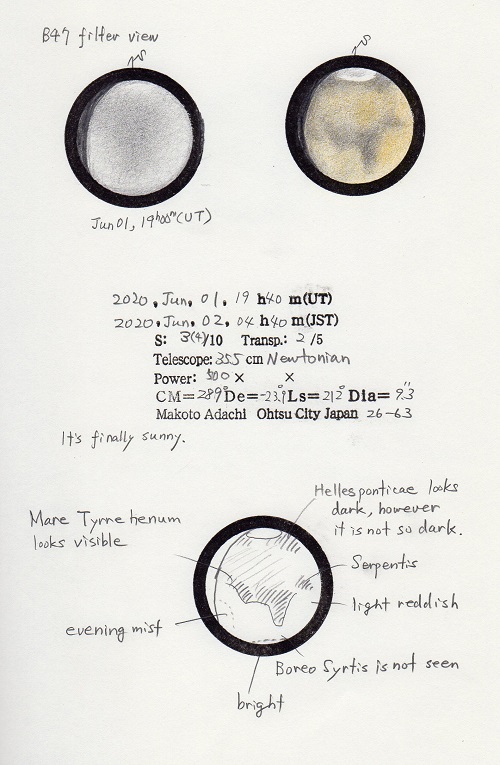 B47 filter view
S
S
Jun 01, 19h00m(UT)
2020, Jun, 01, 19 h40 m(UT)
2020, Jun, 02, 04 h40 m(JST)
S: 3(4)/10 Transp.: 2 /5
Telescope: 355 cm Newtonian
Power: 500 × ×
CM=289° De=-23.9° Ls=212° Dia= 9.3"
Makoto Adachi Ohtsu City Japan 26-63
It's finally sunny.
Hellesponticae looks
dark, however
it is not so dark.
Mare Tyrrehenum
looks visible
Serpentis
light reddish
evening mist
Boreo Syrtis is not seen
bright